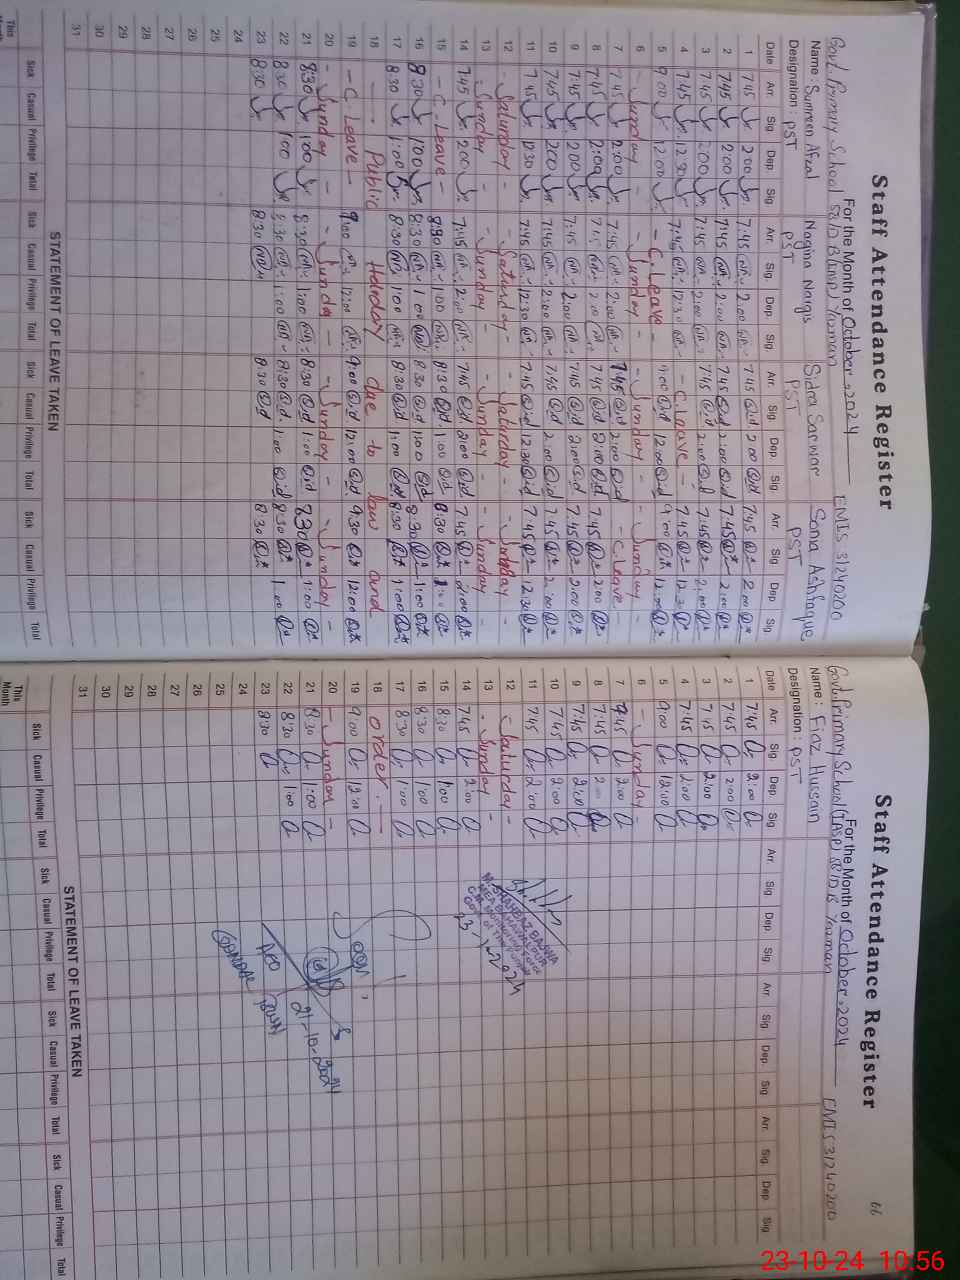 Staff Attendance Register
For the Month of October, 2024
Govt. Primary School
Yazman
EMIS 31240200
Name : Sumreen Afzal
Nagina Nargis
Sidra Sarwar
Sonia Ashfaque
Designation : PST
PST
PST
PST
Date Arr. Sig. Dep. Sig. Arr. Sig. Dep. Sig. Arr. Sig. Dep. Sig. Arr. Sig. Dep. Sig.
1 7:45 2:00 7:45 2:00 7:45 2:00 7:45 2:00
2 7:45 2:00 7:45 2:00 7:45 2:00 7:45 2:00
3 7:45 2:00 7:45 2:00 7:45 2:00 7:45 2:00
4 7:45 12:30 7:45 12:30 - C.Leave - 7:45 12:30
5 9:00 12:00 - C.Leave - 9:00 12:00 9:00 12:00
6 - Sunday - - Sunday - - Sunday - - Sunday -
7 7:45 2:00 7:45 2:00 7:45 2:00 - C.Leave -
8 7:45 2:00 7:45 2:00 7:45 2:00 7:45 2:00
9 7:45 2:00 7:45 2:00 7:45 2:00 7:45 2:00
10 7:45 2:00 7:45 2:00 7:45 2:00 7:45 2:00
11 7:45 12:30 7:45 12:30 7:45 12:30 7:45 12:30
12 - Saturday - - Saturday - - Saturday - - Saturday
13 - Sunday - - Sunday - - Sunday - - Sunday -
14 7:45 2:00 7:45 2:00 7:45 2:00 7:45 2:00
15 - C.Leave - 8:30 1:00 8:30 1:00 8:30 1:00
16 8:30 1:00 8:30 1:00 8:30 1:00 8:30 1:00
17 8:30 1:00 8:30 1:00 8:30 1:00 8:30 1:00
18 Public Holiday due to law and
19 - C.Leave - 9:00 12:00 9:00 12:00 9:30 12:00
20 - Sunday - - Sunday - - Sunday - - Sunday -
21 8:30 1:00 8:30 1:00 8:30 1:00 8:30 1:00
22 8:30 1:00 8:30 1:00 8:30 1:00 8:30 1:00
23 8:30 8:30 8:30 8:30
24
25
26
27
28
29
30
31
STATEMENT OF LEAVE TAKEN
Sick Casual Privilege Total Sick Casual Privilege Total Sick Casual Privilege Total Sick Casual Privilege Total
This
Month
66
Staff Attendance Register
For the Month of October, 2024
Govt. Primary School
Yazman
EMIS 31240200
Name : Fiaz Hussain
Designation : PST
Date Arr. Sig. Dep. Sig. Arr. Sig. Dep. Sig. Arr. Sig. Dep. Sig. Arr. Sig. Dep. Sig.
1 7:45 2:00
2 7:45 2:00
3 7:45 2:00
4 7:45 2:00
5 9:00 12:00
6 - Sunday -
7 7:45 2:00
8 7:45 2:00
9 7:45 2:00
10 7:45 2:00
11 7:45 2:00
12 - Saturday -
13 - Sunday -
14 7:45 2:00
15 8:30 1:00
16 8:30 1:00
17 8:30 1:00
18 order
19 9:00 12:00
20 - Sunday -
21 8:30 1:00
22 8:30 1:00
23 8:30
24
25
26
27
28
29
30
31
M. SHAHBAZ BAJWA
MEA BAHAWALPUR
C.M. Monitoring Force
Govt. of The Punjab
21-10-2024
AEO
STATEMENT OF LEAVE TAKEN
Sick Casual Privilege Total Sick Casual Privilege Total Sick Casual Privilege Total Sick Casual Privilege Total
This
Month
23-10-24 10:56